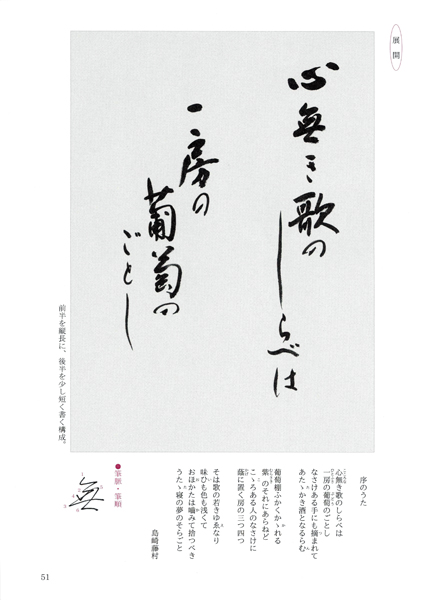 展開
心無き歌のしらべは
一房の葡萄のごとし
前半を縦長に、後半を少し短く書く構成。
序のうた
心無き歌のしらべは
一房の葡萄のごとし
なさけある手にも摘まれて
あたゝかき酒となるらむ
葡萄棚ふかくかゝれる
紫のそれにあらねど
こゝろある人のなさけに
蔭に置く房の三つ四つ
そは歌の若きゆゑなり
味ひも色も浅くて
おほかたは嚙みて捨つべき
うたゝ寝の夢のそらごと
島崎藤村
●筆脈・筆順
無
51